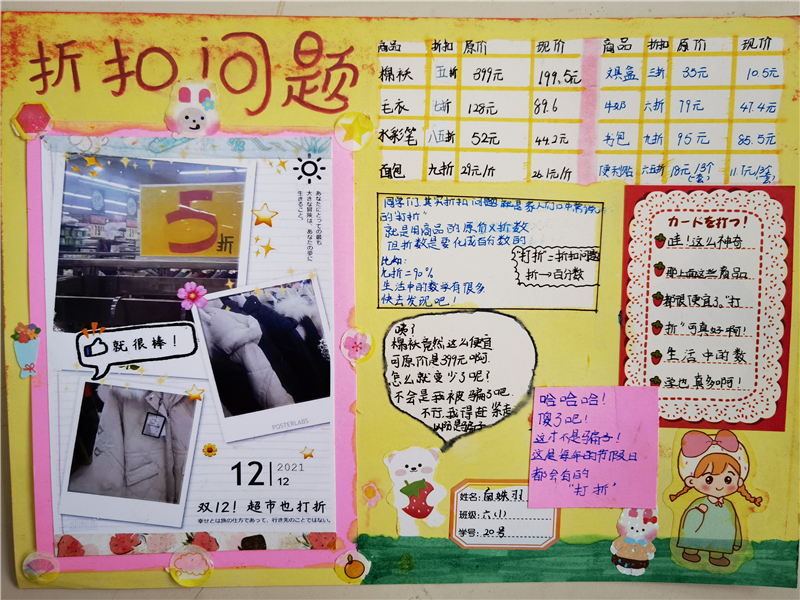 折扣问题
商品 折扣 原价 现价
棉袄 五折 399元 199.5元
毛衣 七折 128元 89.6
水彩笔 八五折 52元 44.2元
面包 九折 29元/斤 26.1元/斤
商品 折扣 原价 现价
文具盒 三折 35元 10.5元
牛奶 六折 79元 47.4元
书包 九折 95元 85.5元
便利贴 六五折
5折
あなたにとっての最も
大きな冒険は、あなたの夢に
生きること。
就很棒！
POSTERLABS
12 2021
12
双12！超市也打折
幸せとは旅の仕方であって、行き先のことではない。
同学们，其实折扣问题就是家人们口中常说
的“打折”
就是用商品的原价×折数
但折数是要化成百分数的
比如：
九折=90%
生活中的数学有很多
快去发现吧！
打折=折扣问题
折→百分数
咦？
棉袄竟然这么便宜
可原价是399元啊
怎么就变少了呢？
不会是我被骗了吧
不行，我得赶紧走
哈哈哈！
傻了吧！
这才不是骗子！
这是每年的节假日
都会有的
“打折”
カードを打つ！
哇！这么神奇
那上面这些商品
都很便宜了。“打
折”可真好啊！
生活中的数
学也真多啊！
姓名：
班级：六(1)
学号：20号